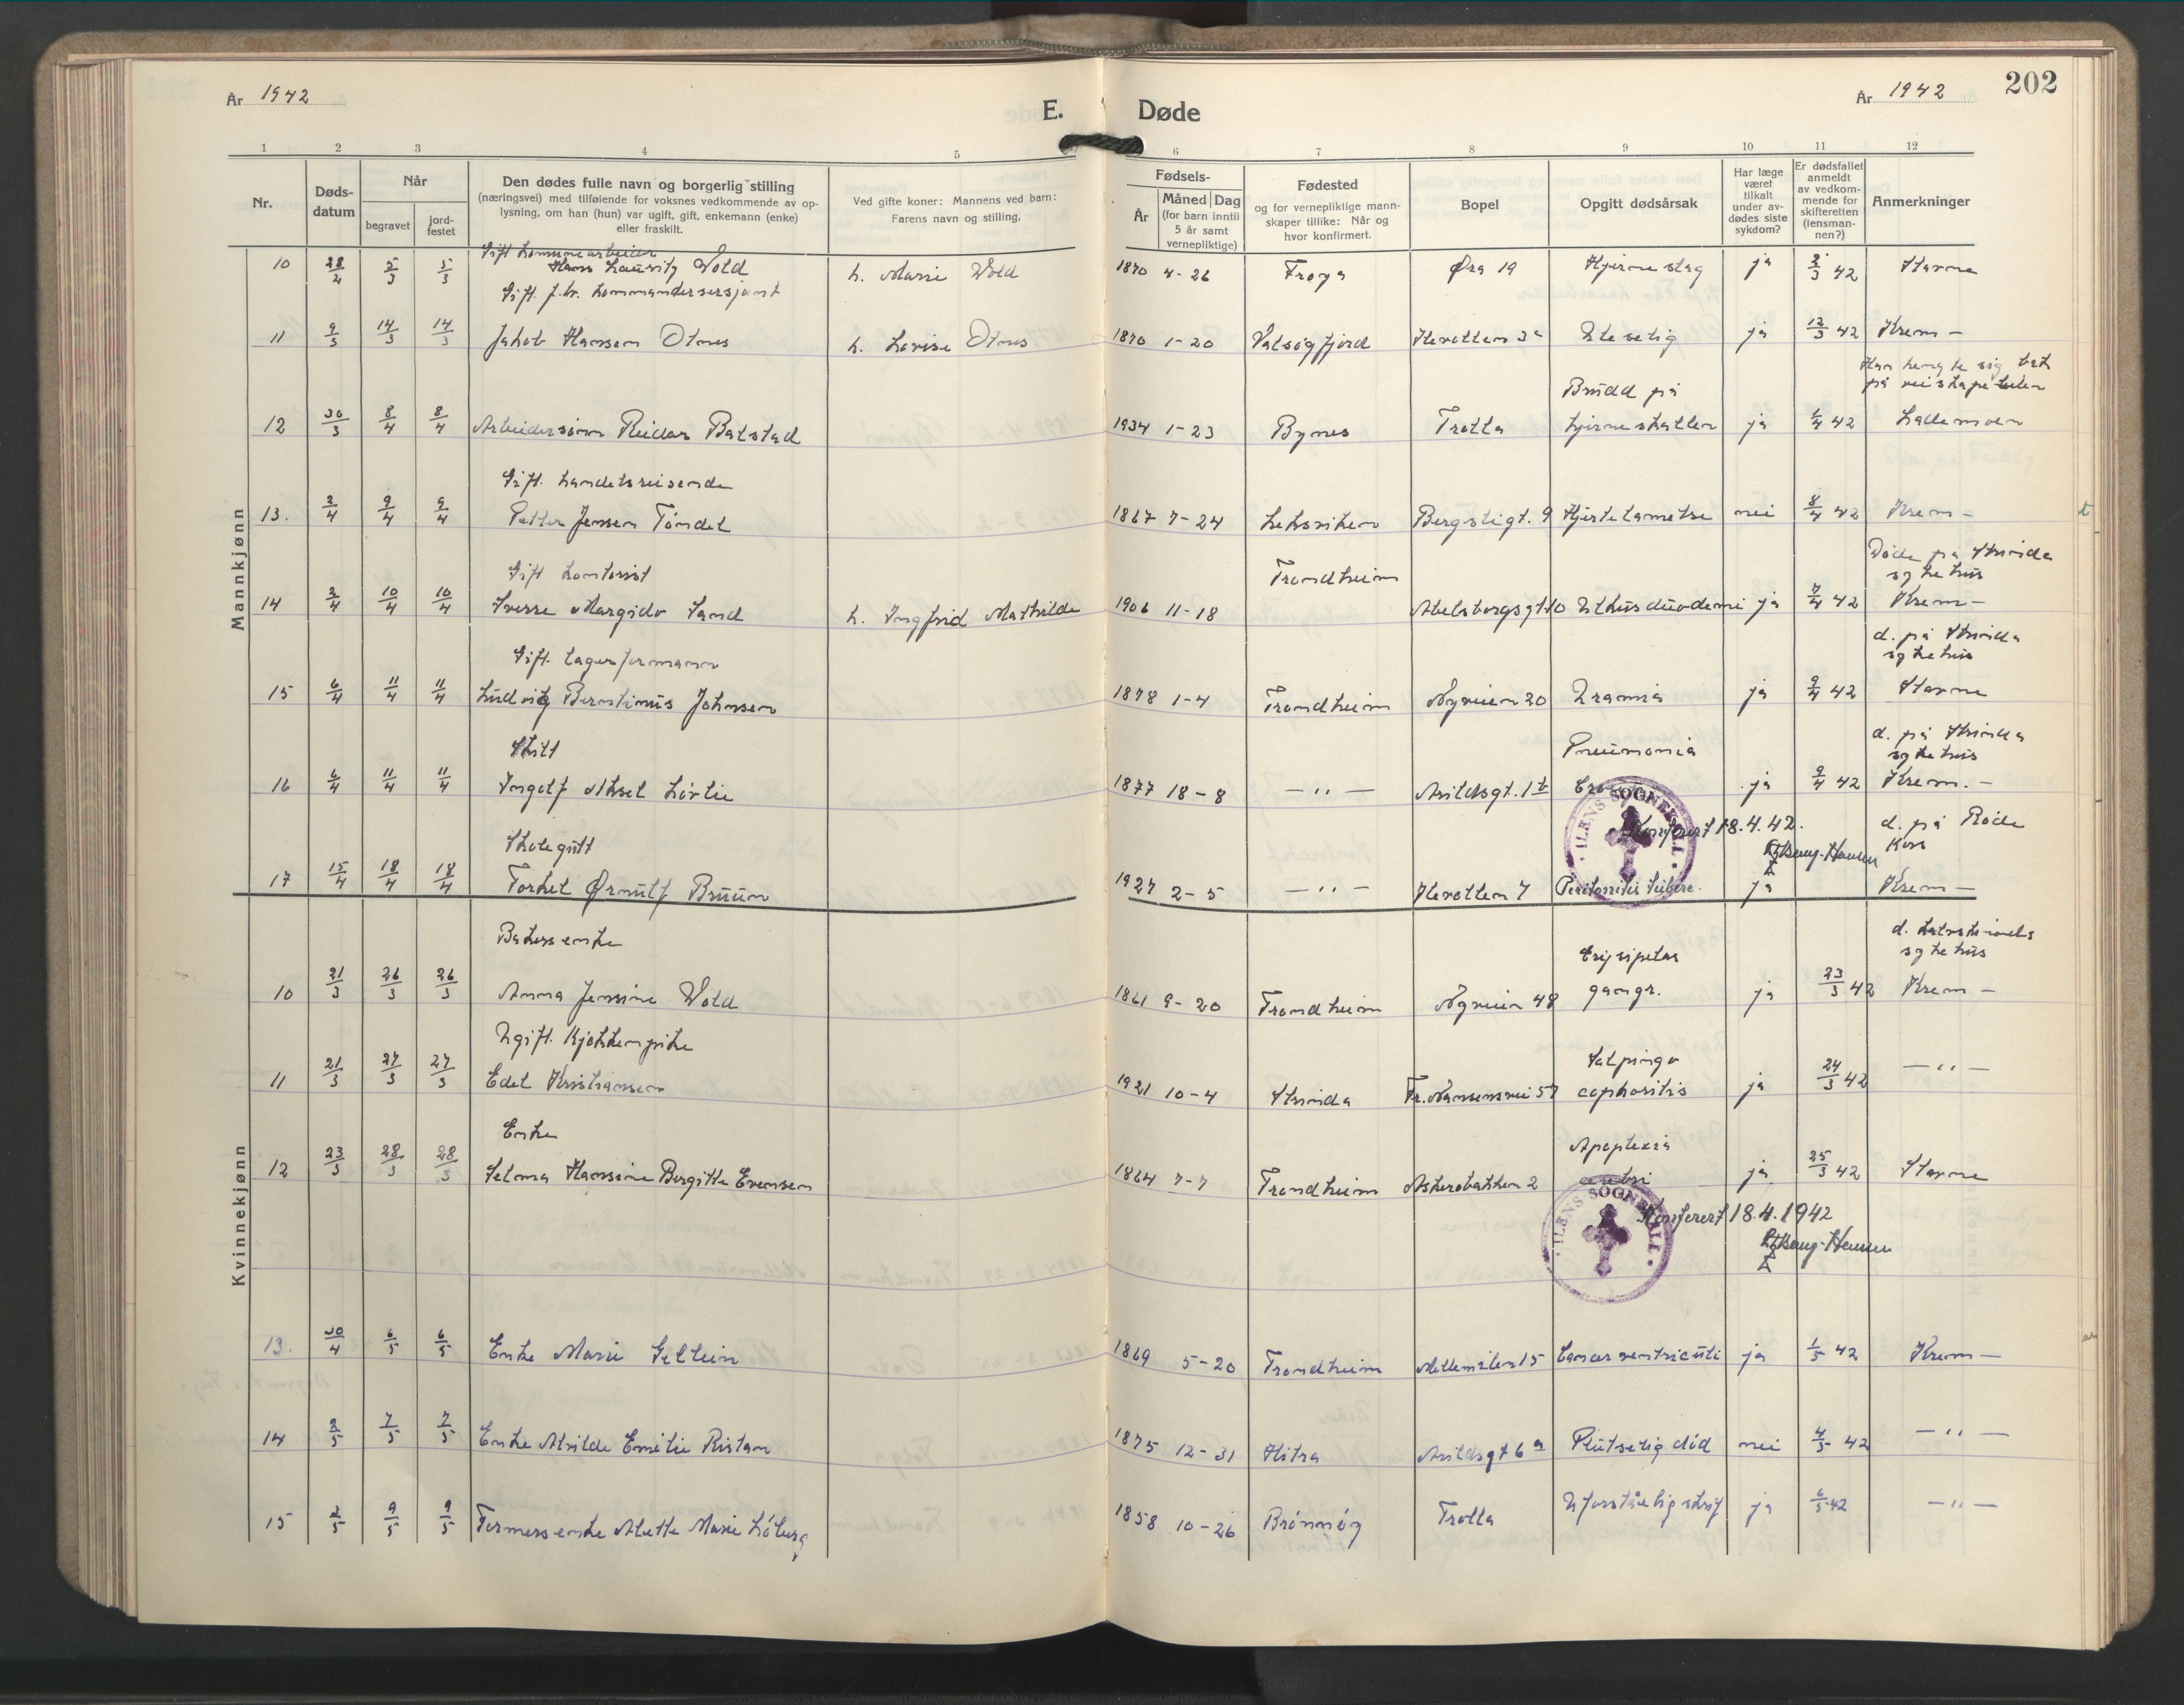 År 1942
E. Døde
År 1942
202
1 2 3 4 5 6 7 8 9 10 11 12
Nr.
Døds-
datum
Når
begravet
jord-
festet
Den dødes fulle navn og borgerlig stilling
(næringsvei) med tilføiende for voksnes vedkommende av op-
lysning, om han (hun) var ugift, gift, enkemann (enke)
eller fraskilt.
Ved gifte koner: Mannens ved barn:
Farens navn og stilling.
Fødsels-
År
Måned Dag
(for barn inntil
5 år samt
vernepliktige)
Fødested
og for vernepliktige mann-
skaper tillike: Når og
hvor konfirmert.
Bopel
Opgitt dødsårsak
Har læge
været
tilkalt
under av-
dødes siste
sykdom?
Er dødsfallet
anmeldt
av vedkom-
mende for
skifteretten
(lensman-
nen?)
Anmerkninger
Mannkjønn
Gift kommunearbeider
10 28/2 5/3 5/3 Hans Lauritz Vold h. Marie Vold 1870 4-26 Frøya Øra 19 Hjerneslag ja 2/3 42 Stavne
Gift f.hv. kommandersersjant
11 9/3 14/3 14/3 Jakob Hansen Otnes h. Lovise Otnes 1870 1-20 Valsøyfjord Hevolden 3c Uleselig ja 12/3 42 Krem-
Brudd på
12 30/3 8/4 8/4 Arbeidersønn Reidar Balstad 1934 1-23 Bynes Trolla hjerneskallen ja 1/4 42 Lademoen
Gift. handelsreisende
13. 2/4 9/4 9/4 Petter Jensen Tøndel 1867 7-24 Leksviken Bergsligt. 9 Hjertelamelse nei 8/4 42 Krem-
Gift kontorist Trondheim Døde på Strinda
sykehus
14 2/4 10/4 10/4 Sverre Margido Sand h. Ingfrid Mathilde 1906 11-18 Abelsborgsgt 10 Ulkus duodeni ja 7/4 42 Krem-
Gift. lagerformann d. på Strinda
sykehus
15 6/4 11/4 11/4 Ludvig Berntinus Johnsen 1878 1-4 Trondheim Nyveien 20 Uramia ja 9/4 42 Stavne
Skilt Pneumonia d. på Strinda
sykehus
16 6/4 11/4 11/4 Ingolf Aksel Lørlie 1877 18-8 -„- Arildsgt. 1b ja 9/4 42 Krem.-
ILENS SOGNEKALL
Konferert 18.4.42.
Skolegutt d. på Røde
Kors
17 15/4 18/4 18/4 Torkel Ørnulf Bruun 1927 2-5 -„- Hevollen 7 Peritonitis tuberc. ja Krem-
Kvinnekjønn
Bakersenke Erysipelas
sykehus
10 21/3 26/3 26/3 Anna Jensine Vold 1861 9-20 Trondheim Nyveien 48 gangr. ja 23/3 42 Krem-
Ugift. Kjøkkenpike Salpingo
11 21/3 27/3 27/3 Edel Kristiansen 1921 10-4 Strinda Fr. Nansensvei 57 oophoritis ja 24/3 42 -„-
Enke Apoplexia
12 23/3 28/3 28/3 Selma Hansine Bergitte Evensen 1864 7-7 Trondheim Askerobakken 2 cerebri ja 25/3 42 Stavne
ILENS SOGNEKALL
Konferert 18.4.1942
13. 30/4 6/5 6/5 Enke Marie Gellein 1869 5-20 Trondheim Mellemilen 15 Cancer ventriculi ja 1/5 42 Krem-
14 2/5 7/5 7/5 Enke Alvilde Emelie Ristan 1875 12-31 Hitra Arildsgt 6a Plutselig død nei 4/5 42 -„-
15 2/5 9/5 9/5 Formersenke Mette Marie Løberg 1858 10-26 Brønnøy Trolla Uforståelig skrif ja 6/5 42 -„-